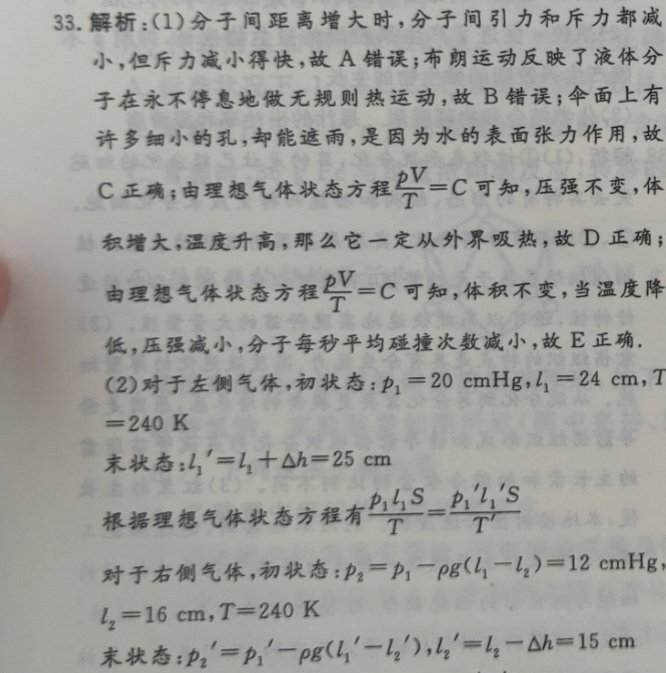 33. 解析:(1)分子间距离增大时,分子间引力和斥力都减
小,但斥力减小得快,故 A 错误;布朗运动反映了液体分
子在永不停息地做无规则热运动,故 B 错误;伞面上有
许多细小的孔,却能遮雨,是因为水的表面张力作用,故
C 正确;由理想气体状态方程pV/T=C 可知,压强不变,体
积增大,温度升高,那么它一定从外界吸热,故 D 正确;
由理想气体状态方程pV/T=C 可知,体积不变,当温度降
低,压强减小,分子每秒平均碰撞次数减小,故 E 正确.
(2)对于左侧气体,初状态:p₁=20 cmHg,l₁=24 cm,T
=240 K
末状态:l₁′=l₁+Δh=25 cm
根据理想气体状态方程有p₁l₁S/T=p₁′l₁′S/T′
对于右侧气体,初状态:p₂=p₁-ρg(l₁-l₂)=12 cmHg,
l₂=16 cm,T=240 K
末状态:p₂′=p₁′-ρg(l₁′-l₂′),l₂′=l₂-Δh=15 cm